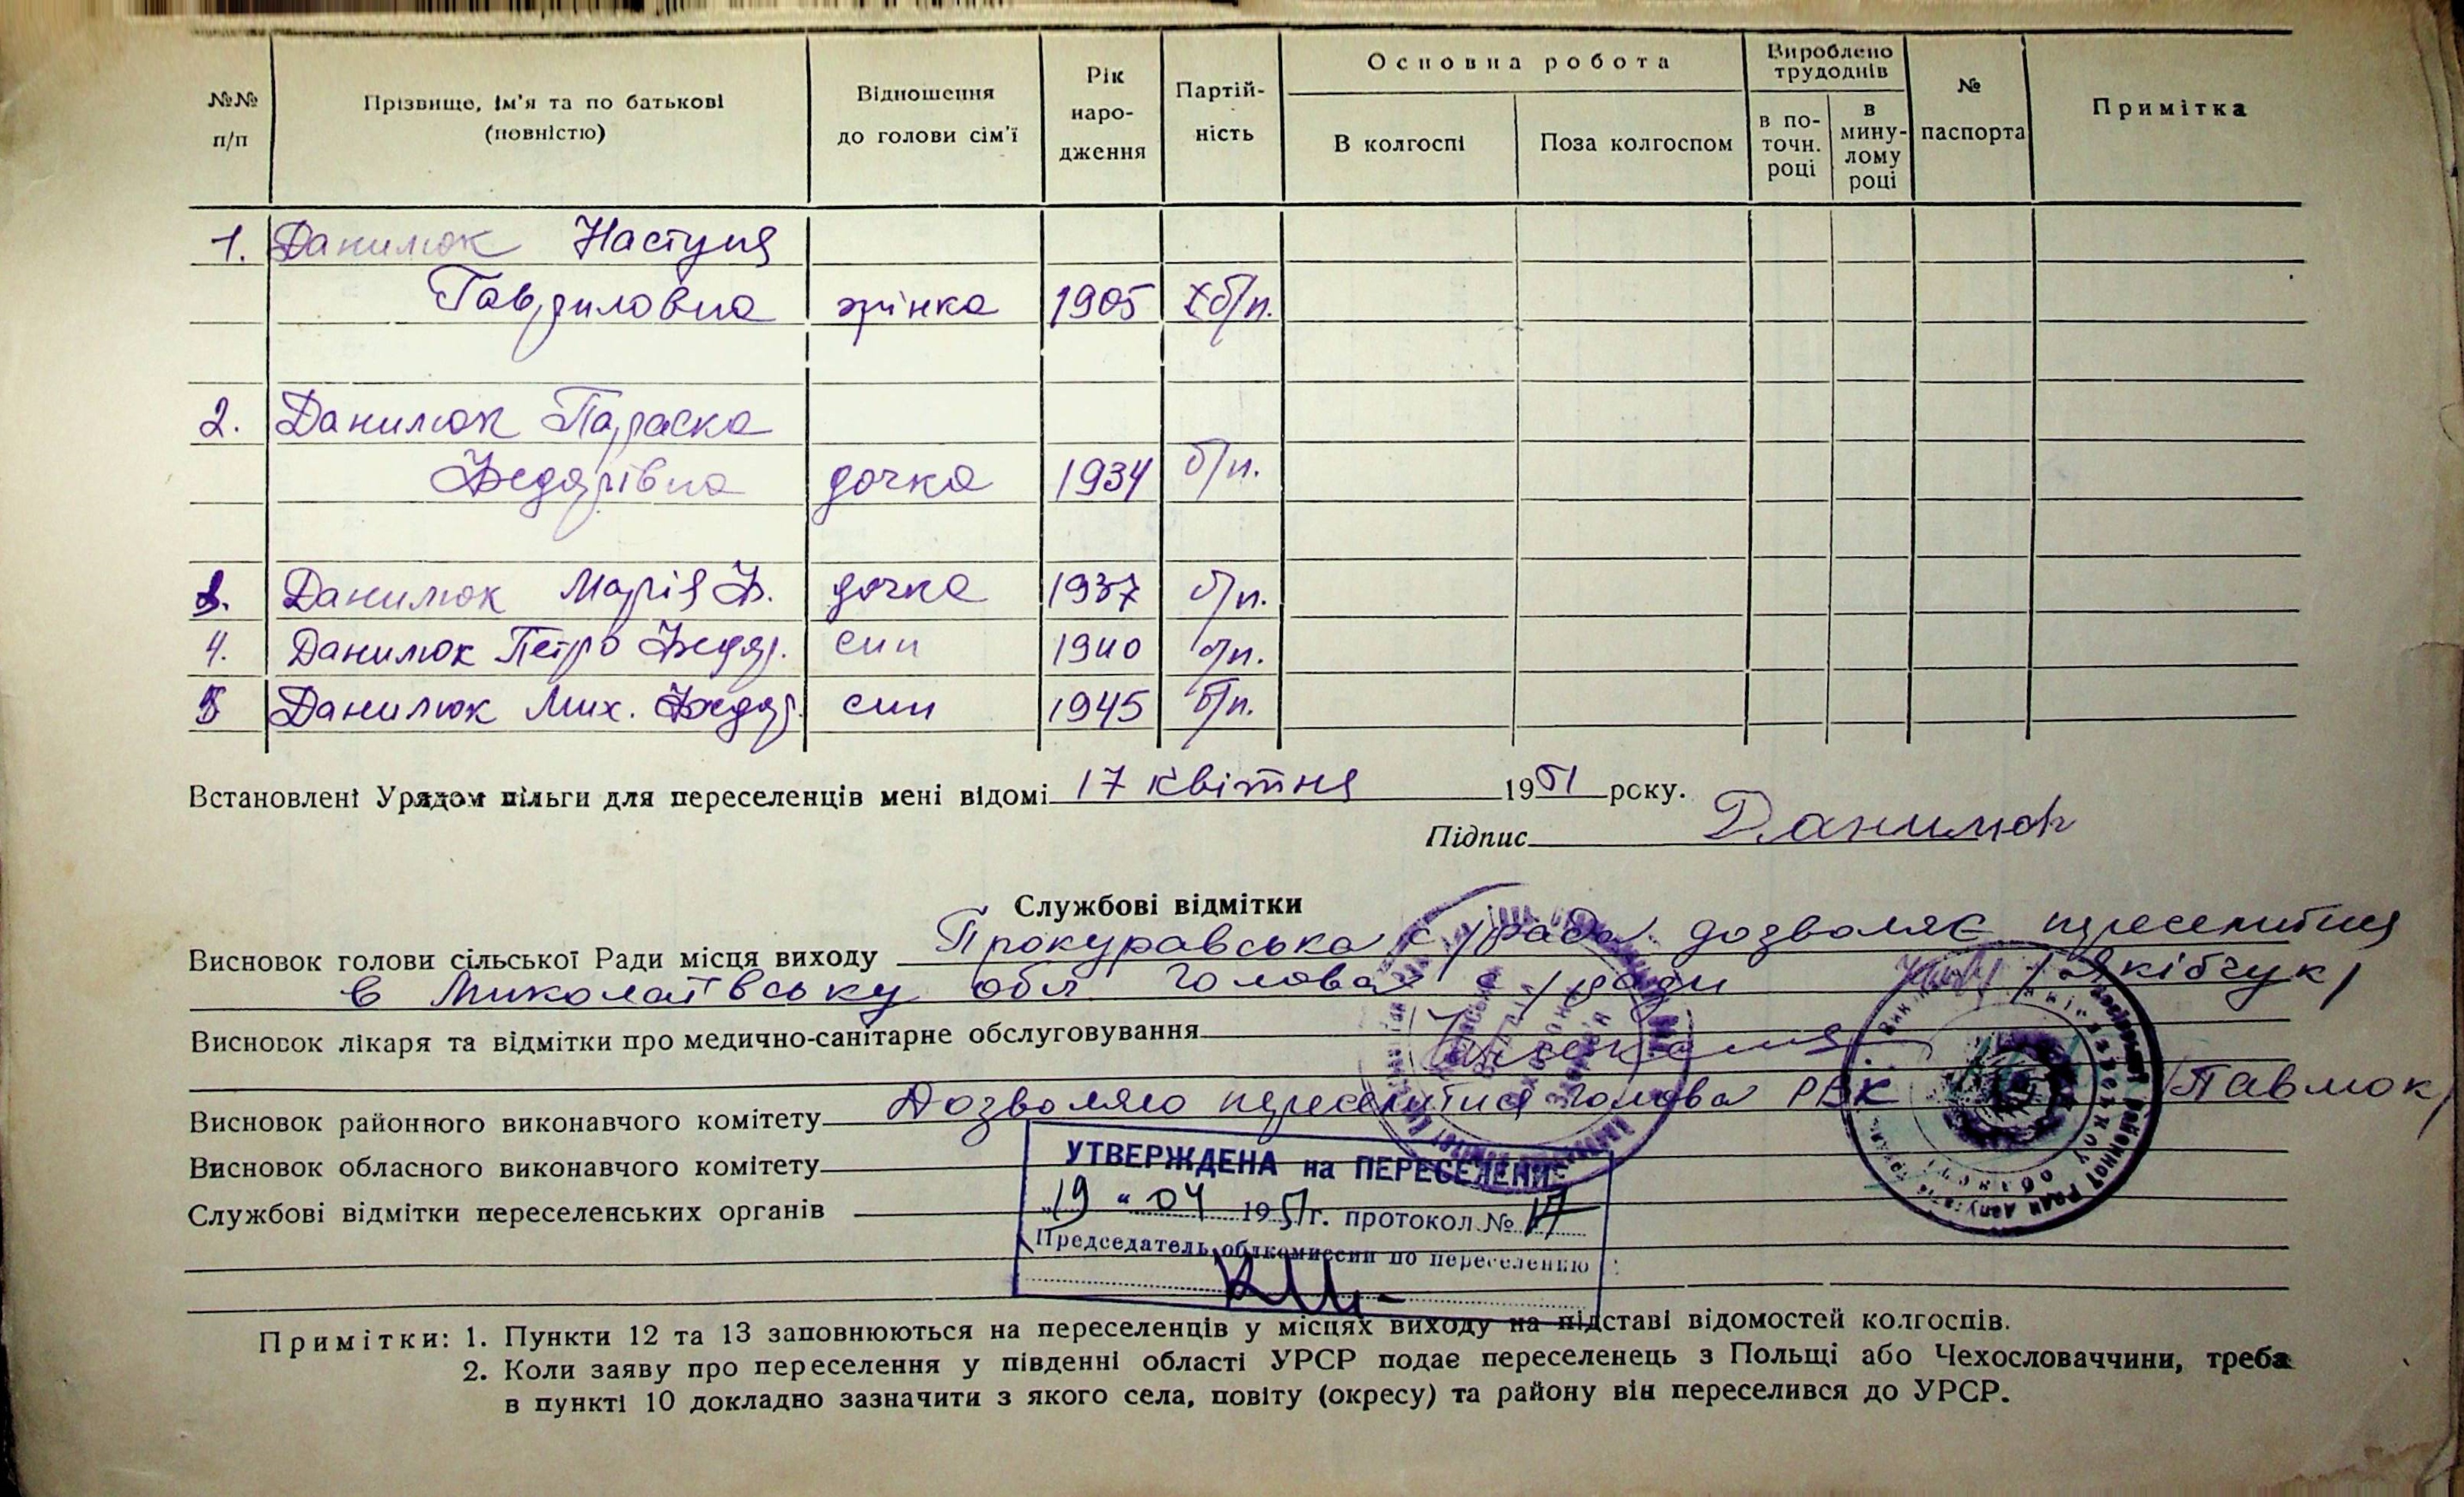 №№ п/п | Прізвище, ім'я та по батькові (повністю) | Відношення до голови сім'ї | Рік наро-дження | Партій-ність | Основна робота | Вироблено трудоднів | № паспорта | Примітка
В колгоспі | Поза колгоспом | в по-точн. році | в мину-лому році
1. Данилюк Настуня
Гавриловна жінка 1905 б/п.
2. Данилюк Параска
Федорівна дочка 1934 б/п.
3. Данилюк Марія Ф. дочка 1937 б/п.
4. Данилюк Петро Федор. син 1940 б/п.
5 Данилюк Мих. Федор. син 1945 б/п.
Встановлені Урядом пільги для переселенців мені відомі 17 квітня 1951 року.
Підпис Данилюк
Службові відмітки
Висновок голови сільської Ради місця виходу Прокуравська с/рада дозволяє переселитися
в Миколаївську обл Голова с/ради /Якібчук/
Висновок лікаря та відмітки про медично-санітарне обслуговування
Висновок районного виконавчого комітету Дозволяю переселитися голова РВК /Павлюк/
Висновок обласного виконавчого комітету
УТВЕРЖДЕНА на ПЕРЕСЕЛЕНИЕ
Службові відмітки переселенських органів
„19“ 04 1951г. протокол № 17
Председатель облкомиссии по переселению
Примітки: 1. Пункти 12 та 13 заповнюються на переселенців у місцях виходу на підставі відомостей колгоспів.
2. Коли заяву про переселення у південні області УРСР подає переселенець з Польщі або Чехословаччини, треба
в пункті 10 докладно зазначити з якого села, повіту (округу) та району він переселився до УРСР.